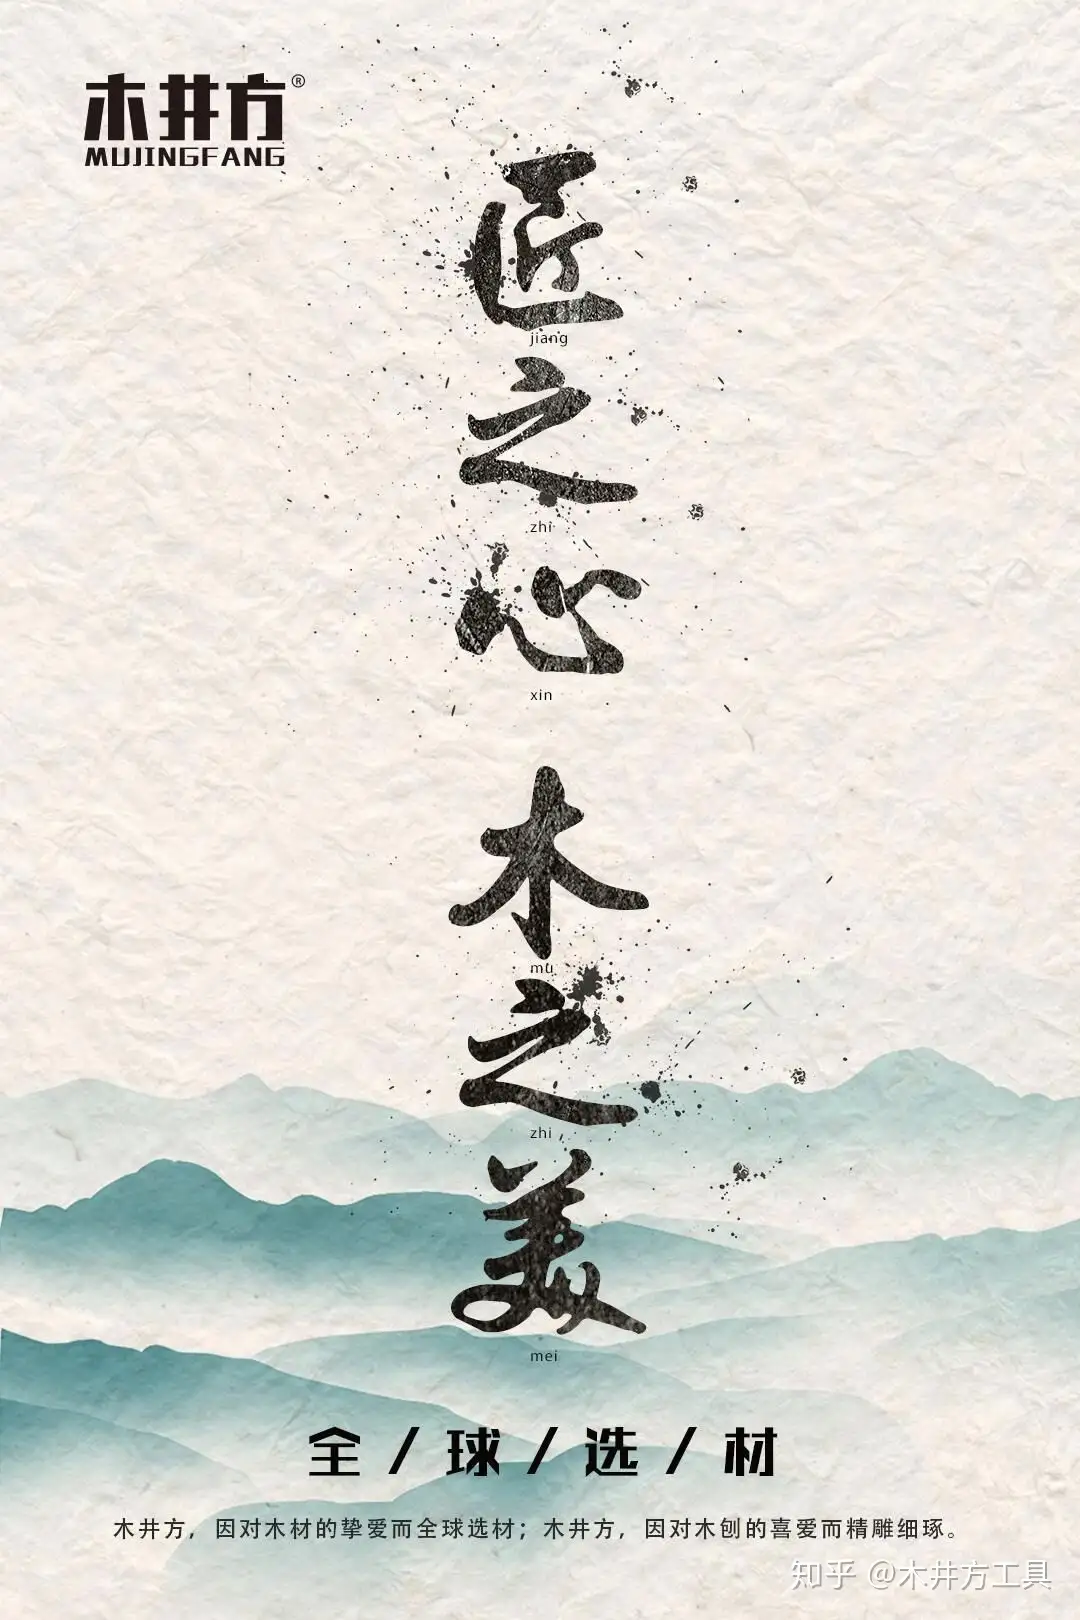 木井方®
MUJINGFANG
匠
jiang
之
zhi
心
xin
木
mu
之
zhi
美
mei
全/球/选/材
木井方，因对木材的挚爱而全球选材；木井方，因对木刨的喜爱而精雕细琢。
知乎 @木井方工具